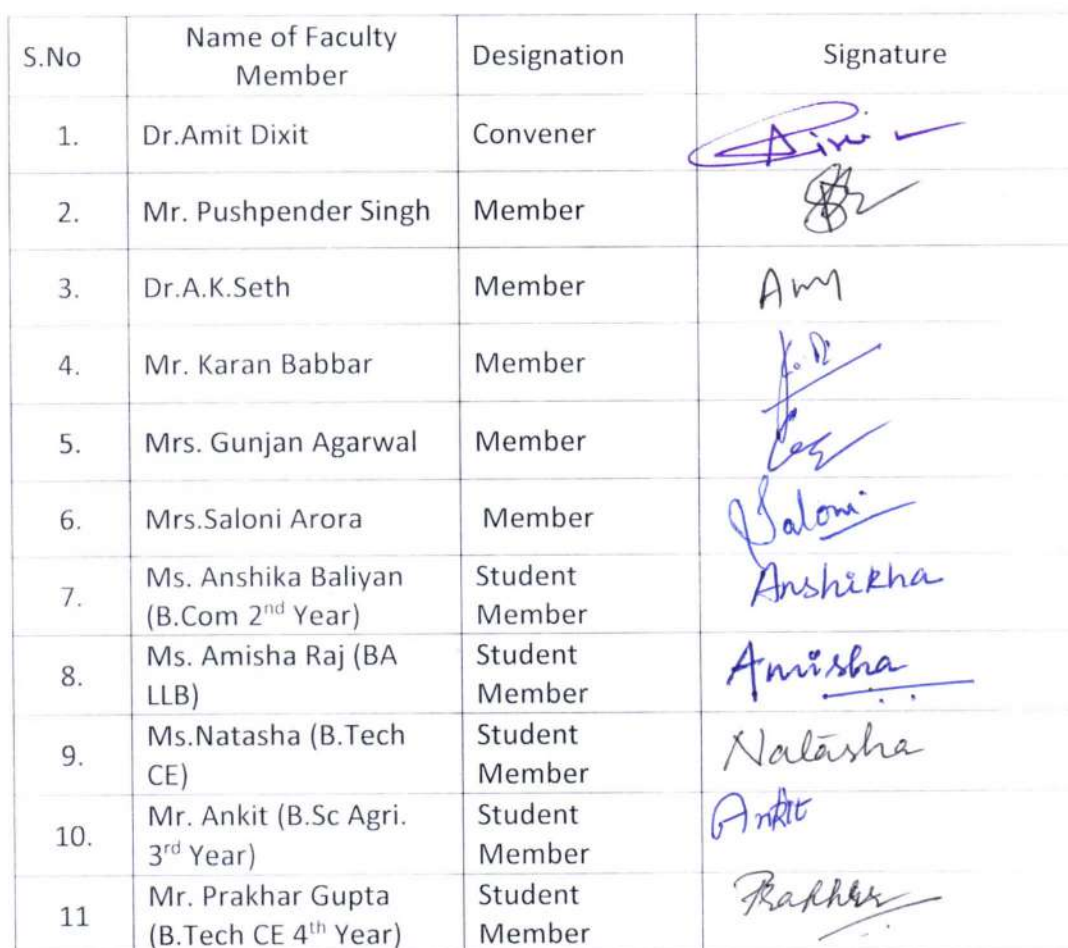 S.No Name of Faculty Member Designation Signature
1. Dr.Amit Dixit Convener
2. Mr. Pushpender Singh Member
3. Dr.A.K.Seth Member
4. Mr. Karan Babbar Member
5. Mrs. Gunjan Agarwal Member
6. Mrs.Saloni Arora Member Saloni
7. Ms. Anshika Baliyan (B.Com 2nd Year) Student Member Anshikha
8. Ms. Amisha Raj (BA LLB) Student Member Amisha
9. Ms.Natasha (B.Tech CE) Student Member Natasha
10. Mr. Ankit (B.Sc Agri. 3rd Year) Student Member Ankit
11 Mr. Prakhar Gupta (B.Tech CE 4th Year) Student Member